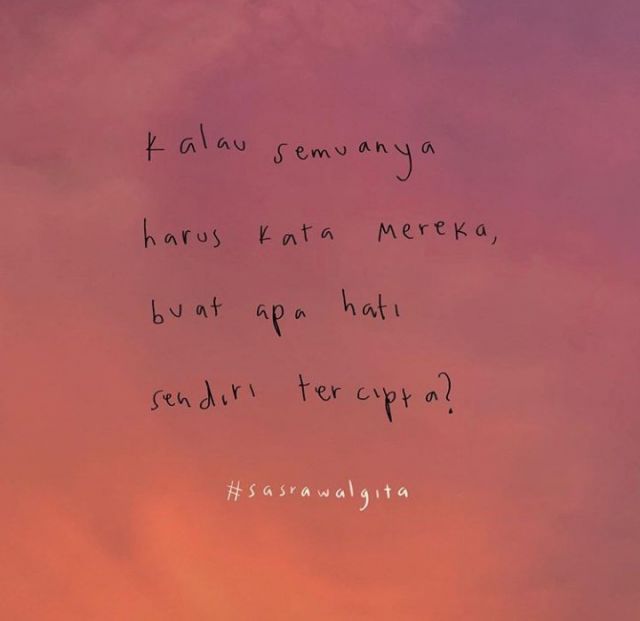 Kalau semuanya
harus kata mereka,
buat apa hati
sendiri tercipta?
#sasrawalgita